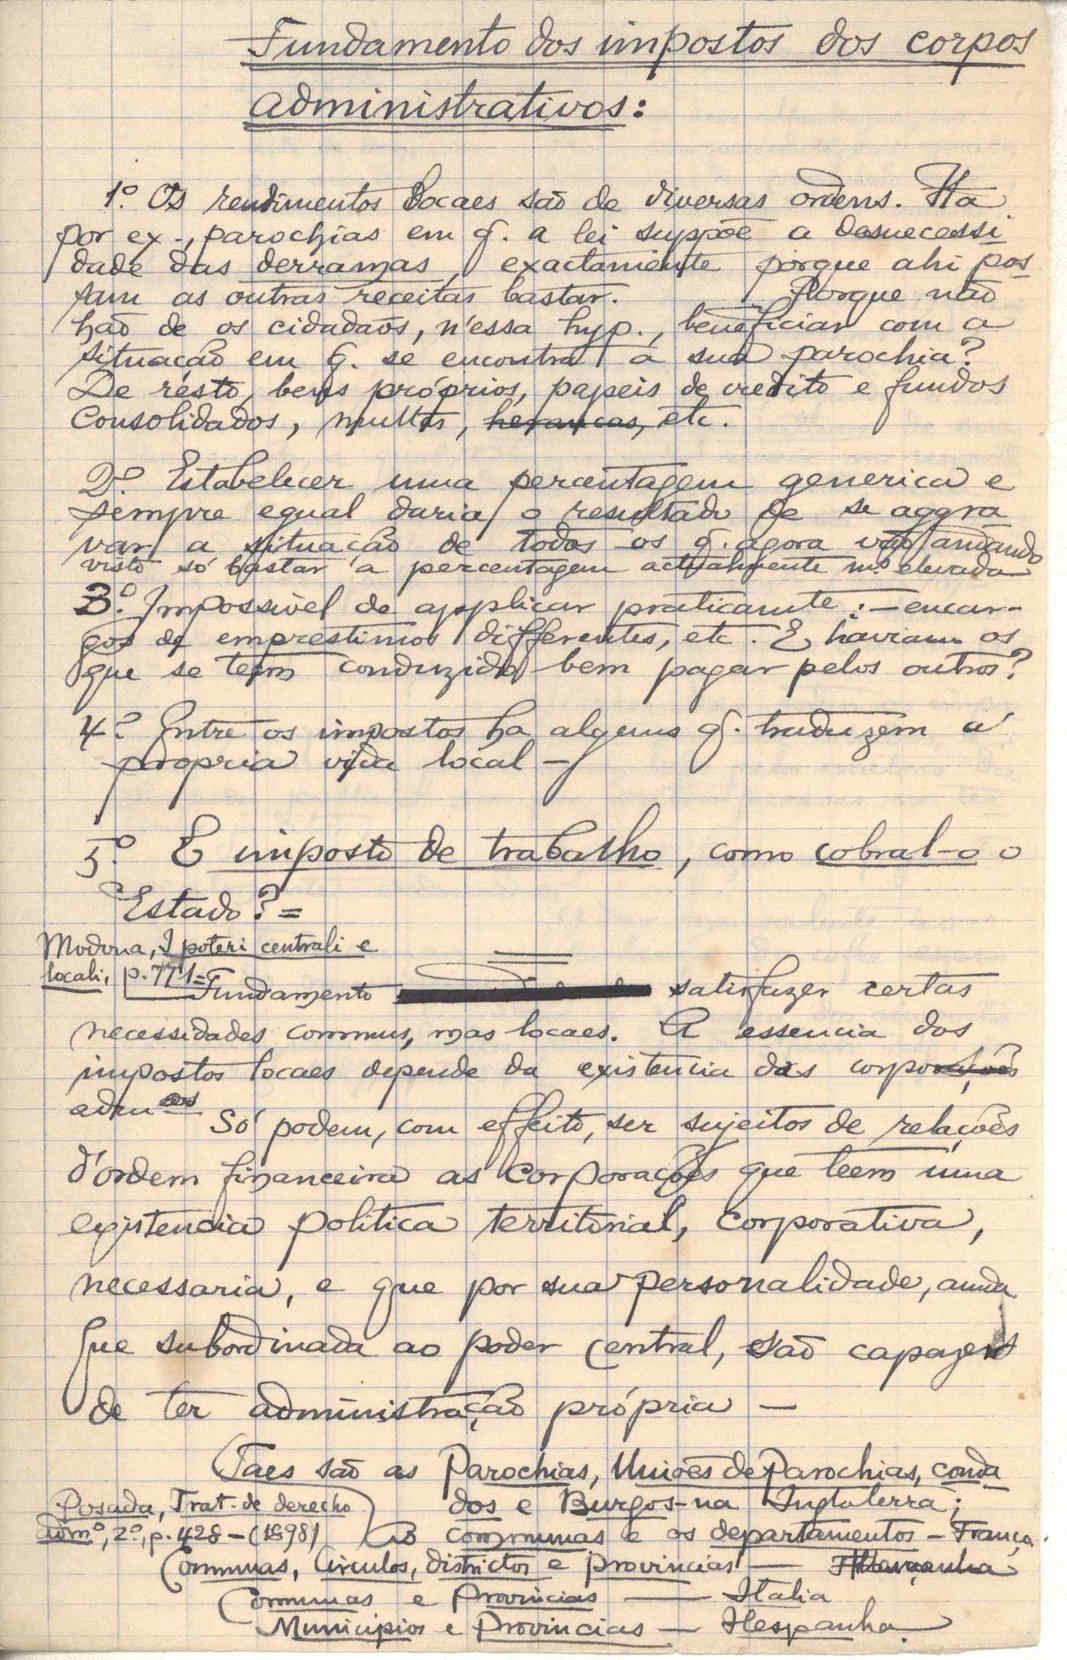 Fundamento dos impostos dos corpos
administrativos:
1.º Os rendimentos locaes são de diversas ordens. Ha
por ex., parochias em q. a lei suppõe a desnecessi
dade das derramas, exactamente porque ahi pos
sam as outras receitas bastar. Porque não
hão de os cidadãos, n'essa hyp., beneficiar com a
situação em q. se encontra a sua parochia?
De résto, bens próprios, papeis de credito e fundos
consolidados, multas, heranças, etc.
2.º Estabelecer uma percentagem generica e
sempre egual daria o resultado de se aggra
var a situação de todos os q. agora vão
visto só bastar a percentagem actualmente m.º elevada
3.º Impossivel de applicar praticamte: — encar-
gos de emprestimos differentes, etc. E haviam os
que se teem conduzido bem pagar pelos outros?
4.º Entre os impostos ha alguns q. traduzem a
propria vida local —
5.º E imposto de trabalho, como cobral-o o
Estado? =
Modona, I poteri centrali e
locali, p. 771 =
Fundamento satisfazer certas
necessidades communs, mas locaes. A essencia dos
impostos locaes depende da existencia das corporações
adm
Só podem, com effeito, ser sujeitos de relações
d'ordem financeira as corporações que teem uma
existencia politica territorial, corporativa,
necessaria, e que por sua personalidade, ainda
que subordinada ao poder central, são capazes
de ter administração própria —
Taes são as Parochias, Uniões de Parochias, conda
dos e Burgos - na Inglaterra;
Posada, Trat. de derecho
adm.º, 2.º, p. 428 - (1898)
As communas e os departamentos — França.
Communas, Circulos, districtos e provincias — Allemanha
Communas e Provincias — Italia
Municipios e Provincias — Hespanha.